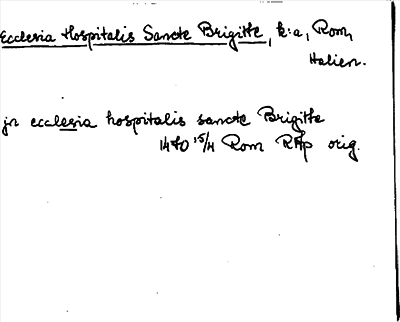 Ecclesia Hospitalis Sancte Brigitte, k:a, Rom,
Italien.
jn ecclesia hospitalis sancte Brigitte
1470 15/4 Rom RAp orig.